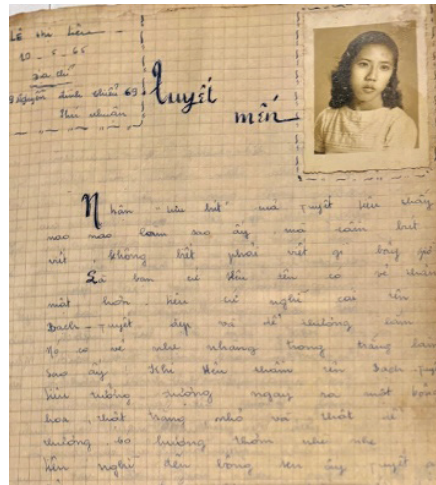 Lê thị liêu
20-5-65
Địa chỉ
nguyễn đình chiểu 69
Phú nhuận
tuyết
mến
Nhận "lưu bút" mà tuyết liêu thấy
nao nao làm sao ấy mà cầm bút
viết, không biết phải viết gì bây giờ
Là bạn cũ
mất hơn liêu cứ nghĩ cái tên
Bạch-tuyết đẹp và dễ thương lắm
Nó có vẻ nhẹ nhàng trong trắng làm
sao ấy. Khi liêu tên Bạch-tuyết
liêu tưởng tượng ngay ra một bông
hoa, thật trắng nhỏ và thật dễ
thương có hương thơm nhè nhẹ
liên nghĩ đến bông sen ấy tuyết